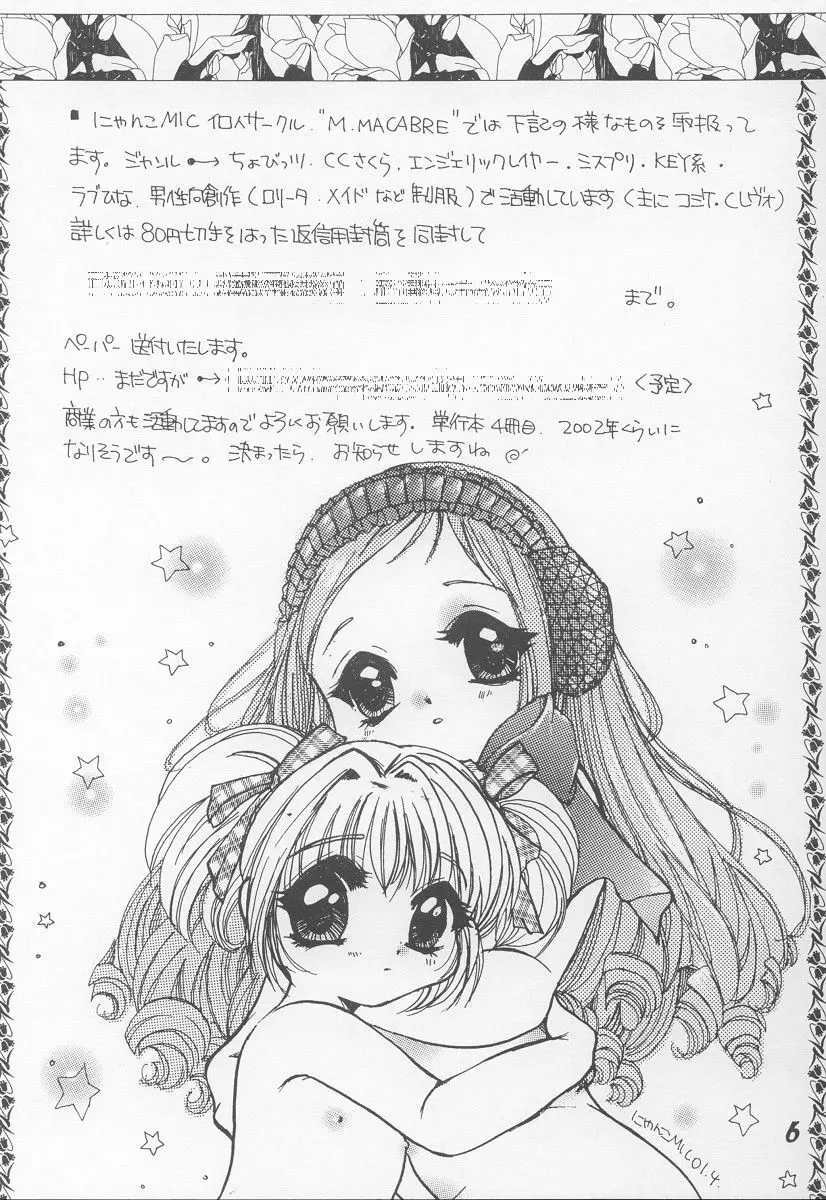 ■ にゃんこMIC 個人サークル "M.MACABRE" では下記の様なものを取扱って
ます。ジャンル ●→ ちょびっツ．CCさくら．エンジェリックレイヤー．ミスプリ．KEY系．
ラブひな．男性向創作（ロリータ・メイドなど制服）で活動しています（主にコミケ．Cレヴォ）
詳しくは80円切手をはった返信用封筒を同封して
まで。
ペーパー送付いたします。
HP‥まだですが ●→ 〈予定〉
商業の方も活動してますのでよろしくお願いします。単行本4冊目、2002年くらいに
なりそうです〜。決まったら、お知らせしますね
にゃんこMIC 01.4.
6